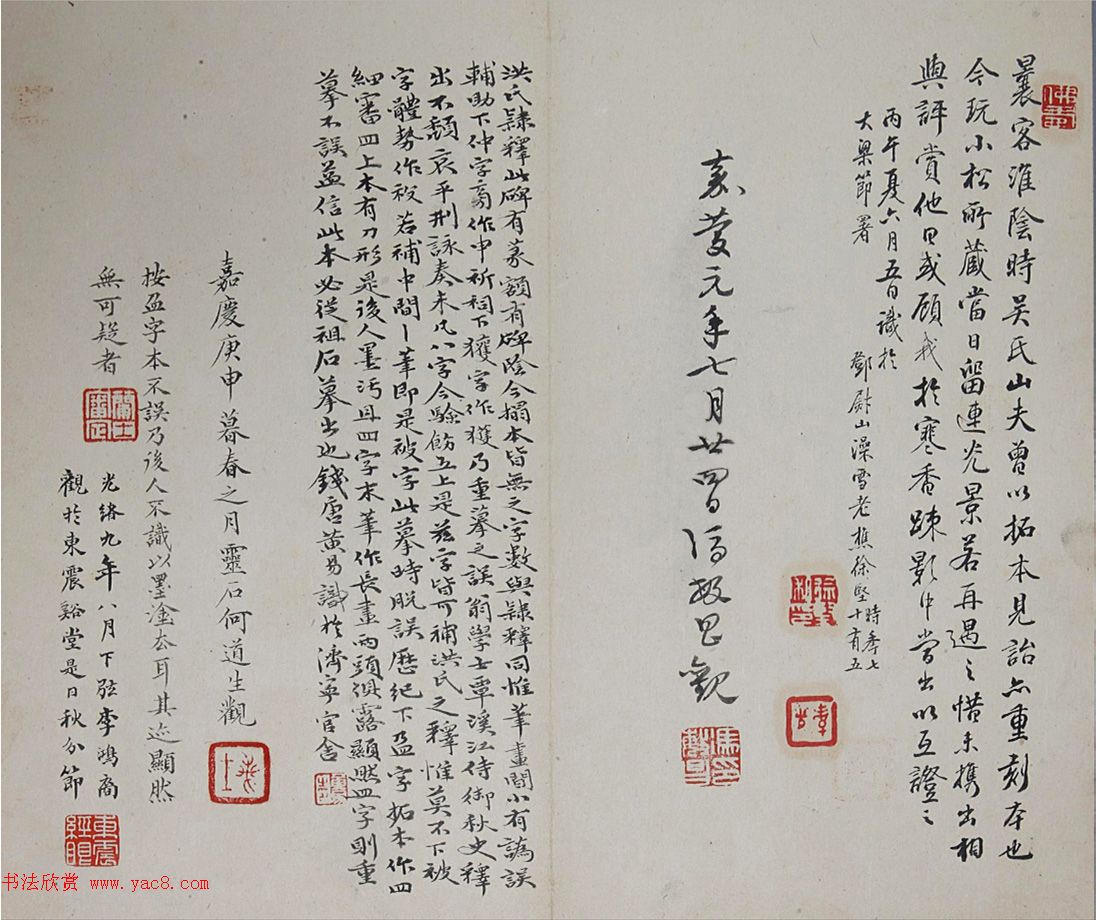 曩客淮陰時吴氏山夫曾以拓本見詒亦重刻本也
今玩小松所藏當日留連光景若再遇之惜未攜出相
與評賞他日或顧我於寒香疎影中當出以互證之
丙午夏六月五日識於
大梁節署
鄧尉山澡雪老樵徐堅時年七
十有五
嘉慶元年七月廿四日馮敏昌觀
洪氏隸釋此碑有篆額有碑陰今搨本皆無之字數與隸釋同惟筆畫間小有譌誤
輔助下仲字裔作申祈祠下獲字作獲乃重摹之誤翁學士覃溪江侍御秋史釋
出不頽哀平刑詠奏末凡八字今驗飭五上是茲字皆可補洪氏之釋惟莫不下被
字體勢作袚若補中間丨筆即是被字此摹時脱誤歷紀下盈字拓本作四
細審四上本有刀形是後人墨污且四字末筆作長畫兩頭俱露顯然皿字則重
摹不誤益信此本必從祖石摹出也錢唐黄易識於濟寧官舍
嘉慶庚申暮春之月靈石何道生觀
按盈字本不誤乃後人不識以墨塗去耳其迹顯然
無可疑者
光緒九年八月下弦李鴻裔
觀於東震谿堂是日秋分節
書法欣赏 www.yac8.com